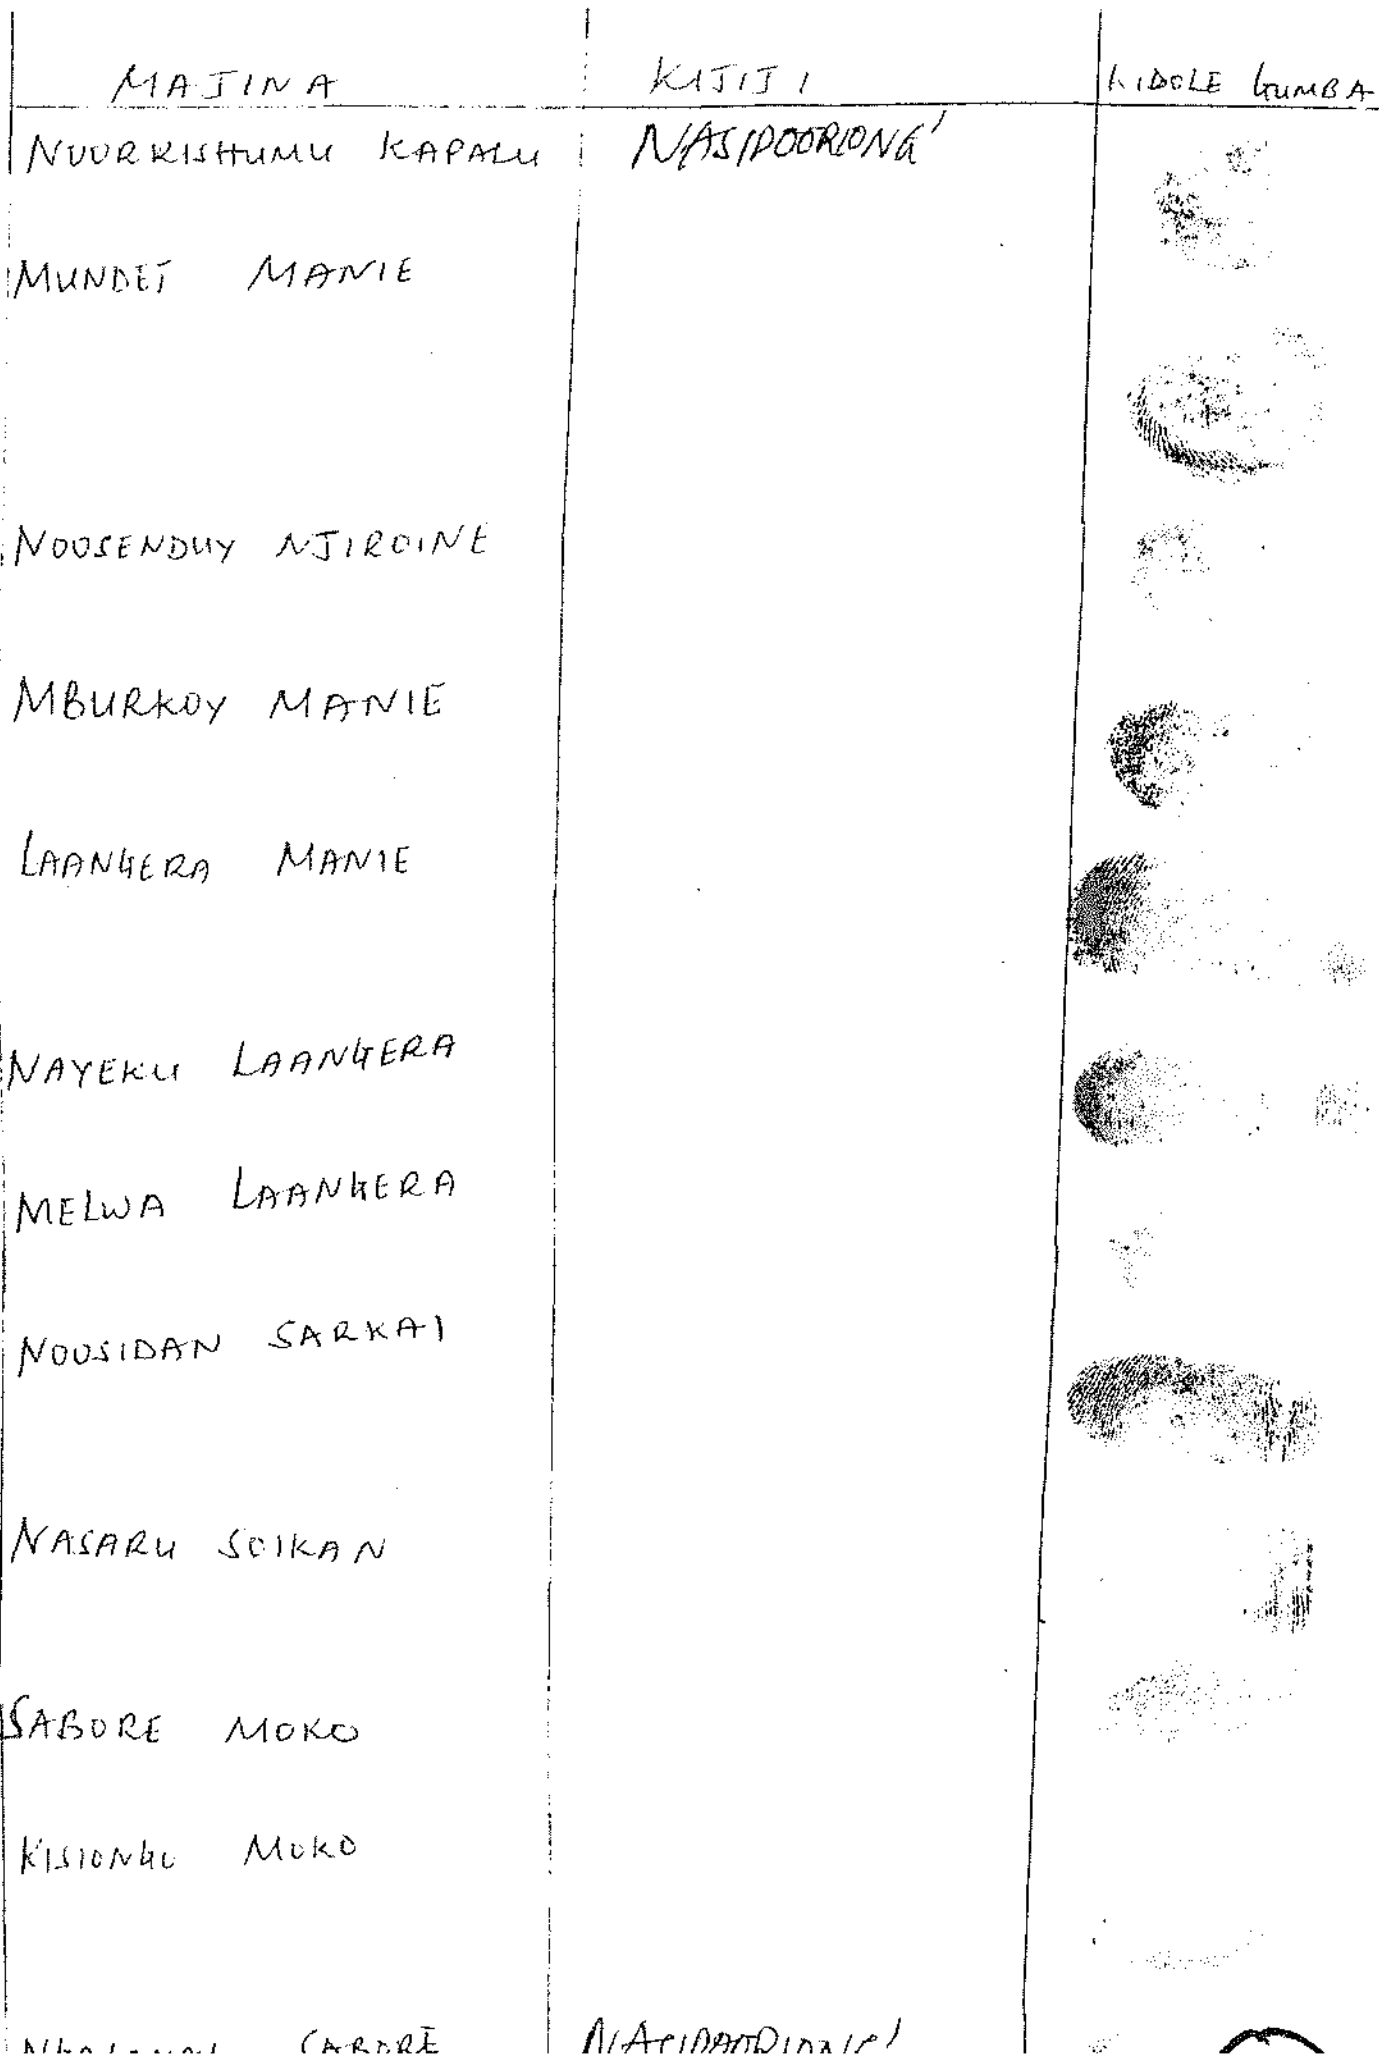 MAJINA KIJIJI KIDOLE GUMBA
NOORKISHUMU KAPALU NASIPOORIONG'
MUNDET MANIE
NOOSENDUY NJIROINE
MBURKOY MANIE
LAANGERA MANIE
NAYEKU LAANGERA
MELWA LAANGERA
NOOSIDAN SARKAI
NASARU SOIKAN
SABORE MOKO
KISIONGO MOKO
SABORE NASIPOORIONG'